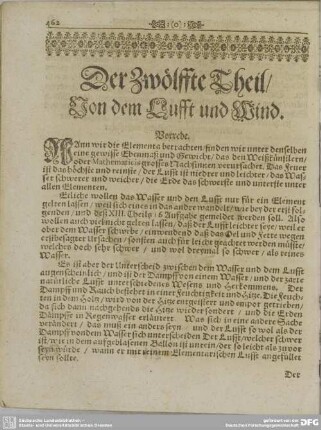 462
Der Zwölffte Theil/
Von dem Lufft und Wind.
Vorrede.
Wann wir die Elementa betrachten/finden wir unter denselben
eine gewisse Ebenmaß und Gewicht/ das den Weißkünstlern/
oder Mathematicis grosses Nachsinnen verursachet. Das Feuer
ist das höchste und reinste/ der Lufft ist niedrer und leichter/ das Was-
ser schwerer und weicher/ die Erde das schwerste und unterste unter
allen Elementen.
Etliche wollen das Wasser und den Lufft nur für ein Element
gelten lassen/ weil sich eines in das andre wandelt/ wie bey der erst fol-
genden/ und deß XIII. Theils 16 Aufgabe gemeldet werden soll. Also
wollen auch vielmals nicht gelten lassen/ daß der Lufft leichter seye/ weil er
ober dem Wasser schwebe/ einwendend daß das Oel und Fette wegen
erstbesagter Ursachen/ sondern auch für leicht geachtet werden müste/
welches doch sehr schwer/ und wol dreymal so schwer/ als reines
Wasser.
Es ist aber der Unterscheid zwischen dem Wasser und dem Lufft
augenscheinlich/ und ist der Dampff von einem Wasser/ und der zarte
natürliche Lufft unterschiedenes Wesens und Herkommens. Der
Dampff und Rauch bestehet in einer Feuchtigkeit und Hitze. Die Feuch-
ten in dem Holtz/ wird von der Hitze ausgetrieben und empor getrieben/
da sich dann nachgehends die Hitze wieder sondert/ und die Erden
Dämpffe in Regenwasser erkältert. Was sich in eine andere Sache
verändert/ das muß ein anders seyn/ und der Lufft so wol als der
Dampff sind vom Wasser sich unterscheiden Der Lufft/ welcher schwer
ist/ wie in dem aufgeblasenen Ballon ist unrein/ der so leicht als zuvor
seyn würde/ wann er mit reinem Elementarischen Lufft angefüllet
seyn sollte.
Der